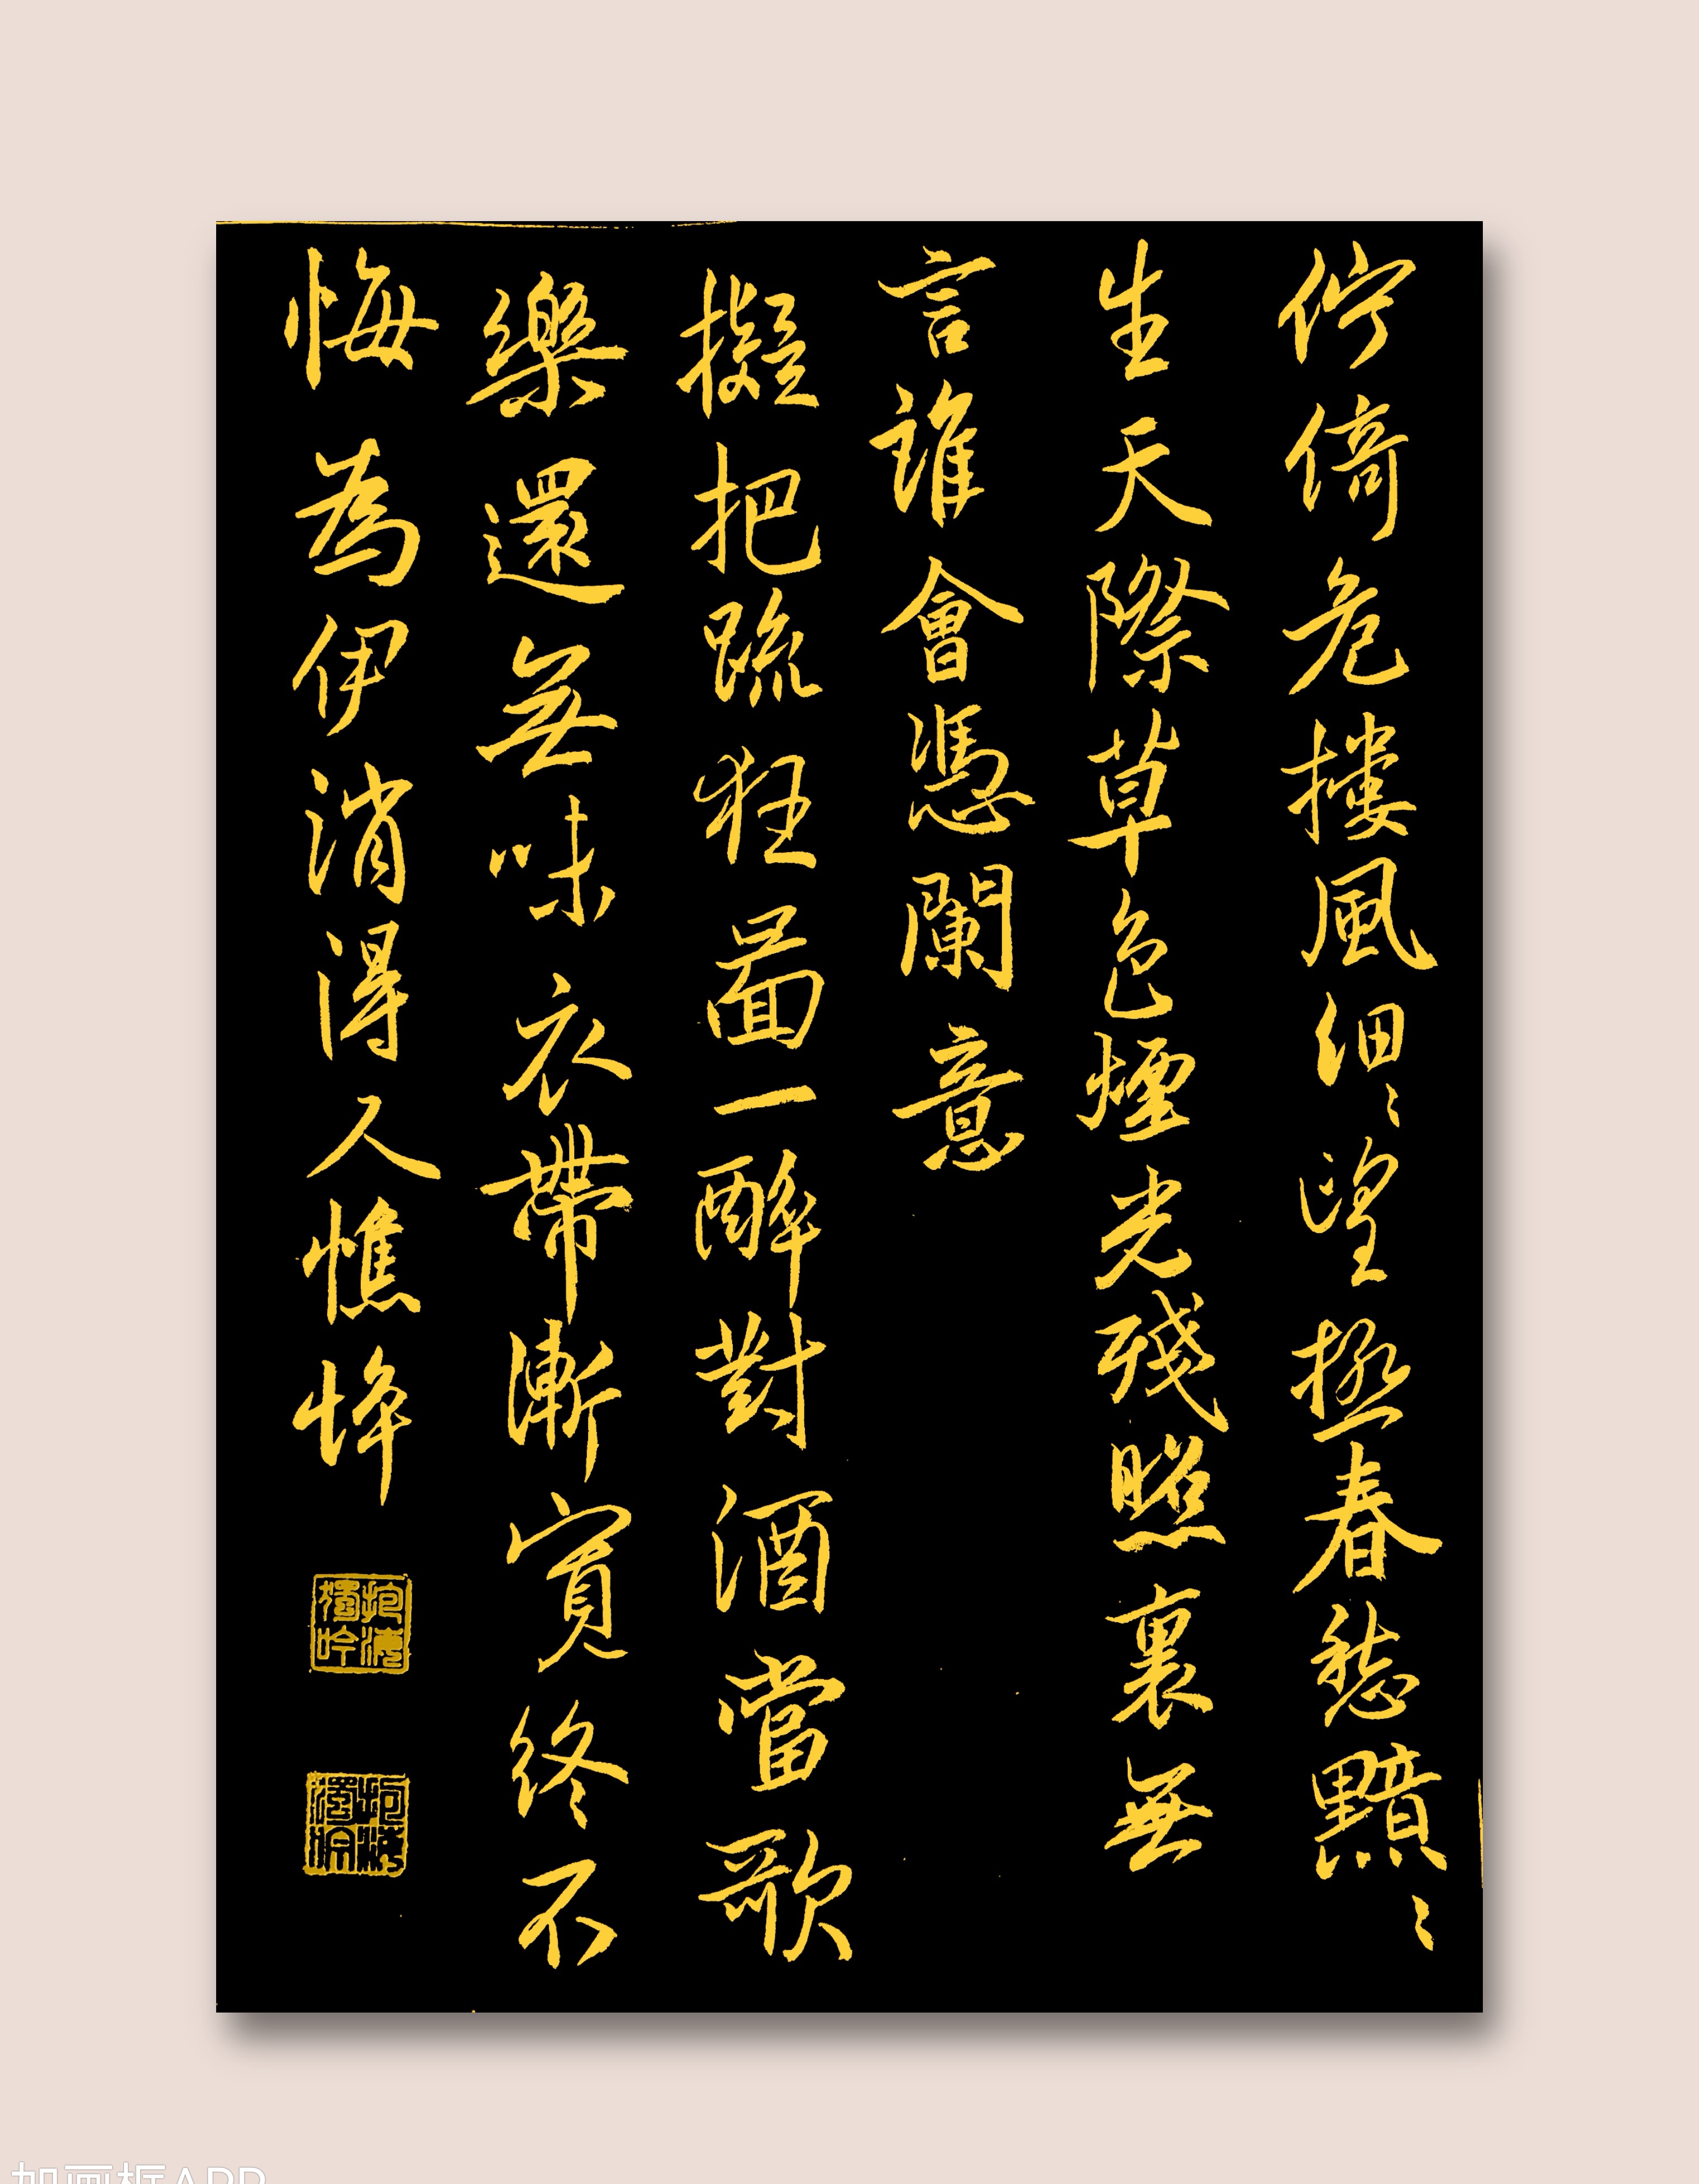 佇倚危樓風細〻望極春愁黯〻
生天際草色煙光殘照裏無
言誰會憑闌意
擬把疏狂圖一醉對酒當歌
樂還無味衣帶漸寬終不
悔為伊消得人憔悴
加画框APP